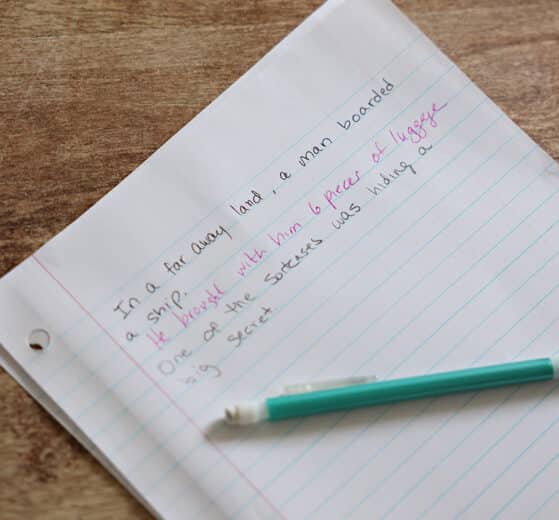 In a far away land, a man boarded
a ship.
He brought with him 6 pieces of luggage
One of the suitcases was hiding a
big secret